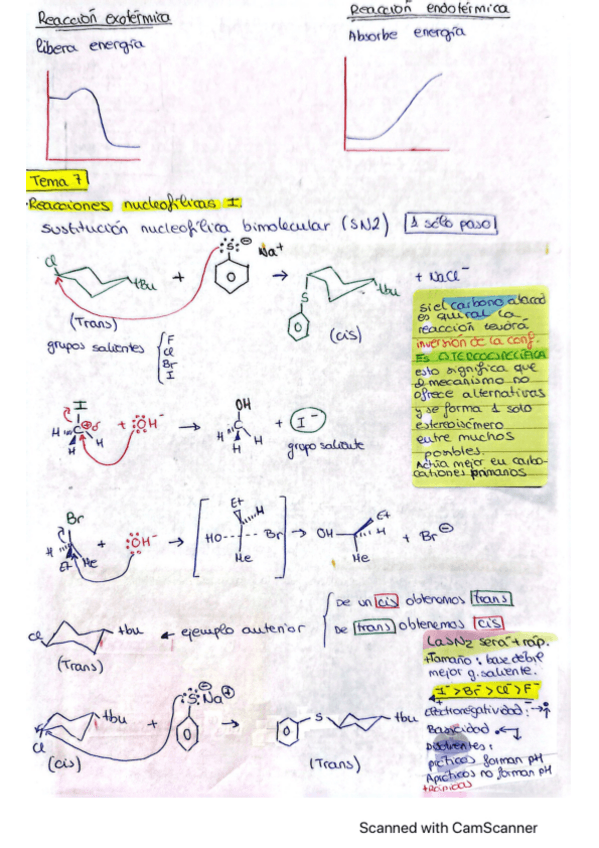 Reacción exotérmica
Reacción endotérmica
libera energía
Absorbe energía
Tema 7
Reacciones nucleofílicas I.
sustitución nucleofílica bimolecular (SN2) 1 sólo paso
Cl
tBu
+
S
Na+
→
S
tBu
+ NaCl⁻
(Trans)
(cis)
grupos salientes
F
Cl
Br
I
si el carbono atacad
es quiral la
reacción tendrá
inversión de la conf.
Es
esto significa que
el mecanismo no
ofrece alternativas
y se forma 1 solo
estereoisómero
entre muchos
posibles.
Actúa mejor en carbo-
cationes primarios
I
H C H
H
+ :OH⁻
→
OH
C
H H H
+ I⁻
grupo saliente
Br
H
Et Me
+ :OH⁻
→
Et
H
HO --- Br
Me
→
OH
Et
H
Me
+ Br⊖
Cl
tbu
(Trans)
← ejemplo anterior
De un cis obtenemos trans
De trans obtenemos cis
La SN2 será + ráp.
+Tamaño: base débil
mejor g. saliente.
I⁻ > Br⁻ > Cl⁻ > F⁻
electronegatividad
Basicidad
Disolventes:
próticos forman pH
Apróticos no forman pH
+Rápidas
Cl
tbu
+
S
Na
→
S
tbu
(cis)
(Trans)
Scanned with CamScanner